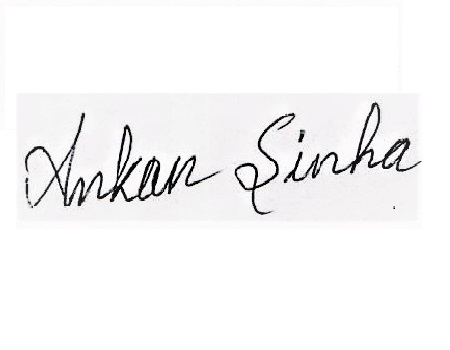 Ankan Sinha